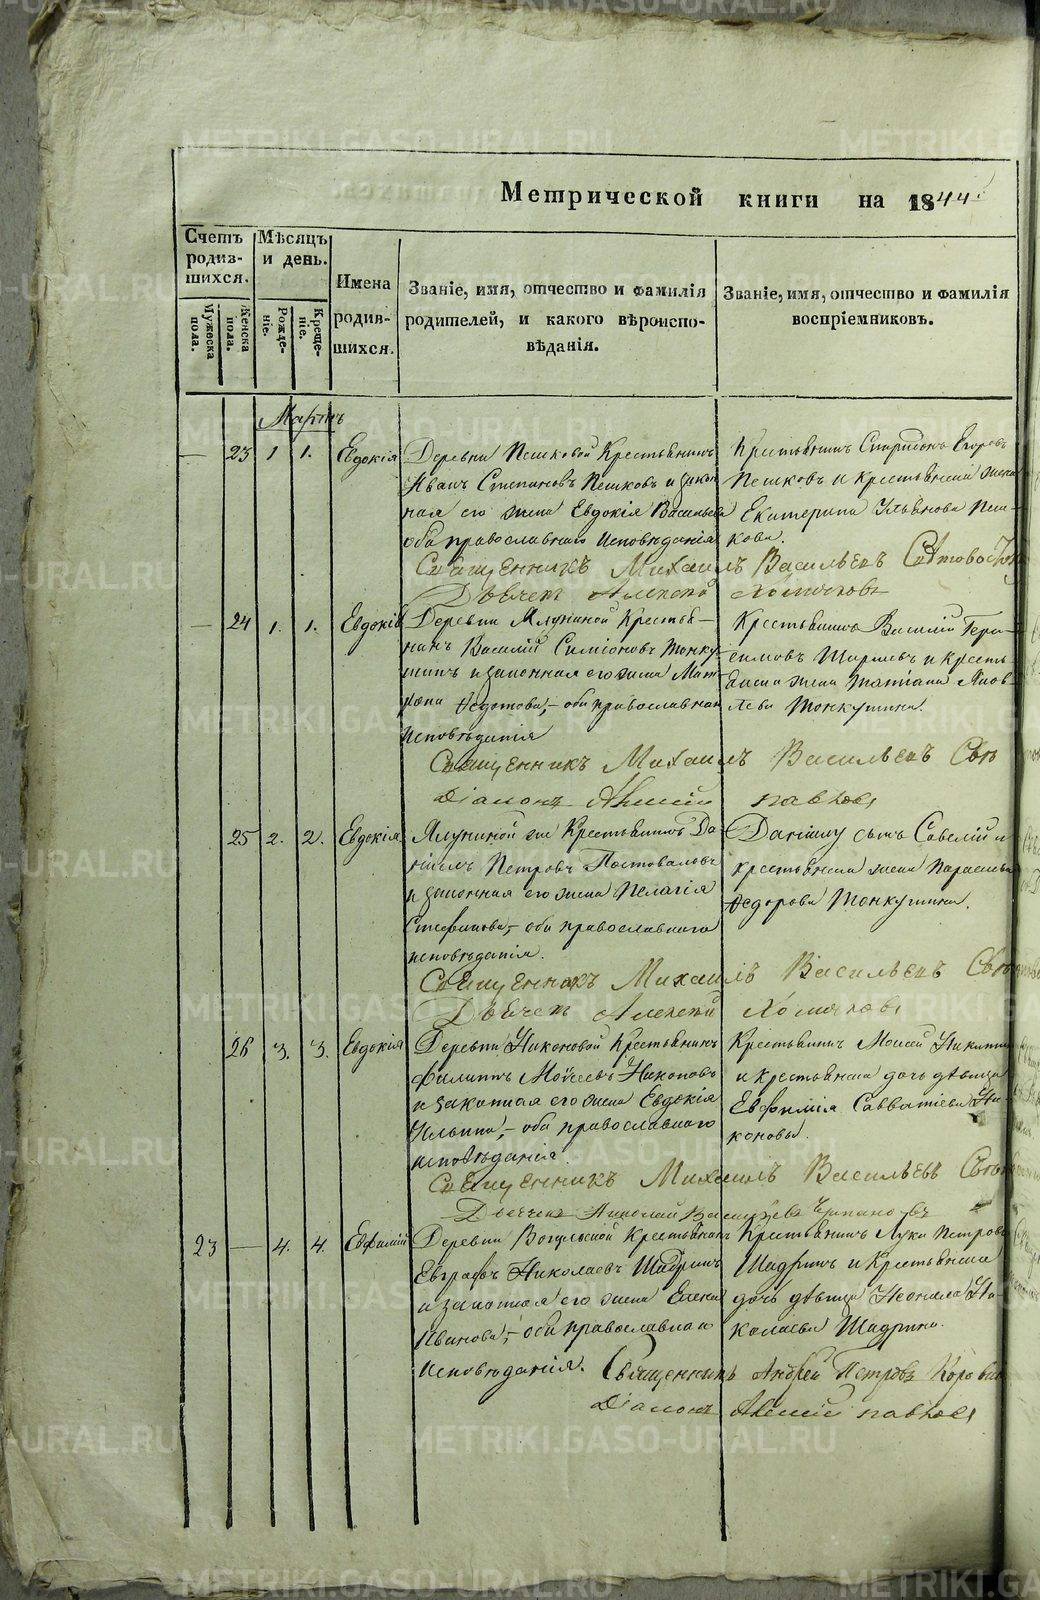 Метрической книги на 1844
Счетъ родив-шихся.
Мѣсяцъ и день.
Имена родив-шихся.
Званіе, имя, отчество и фамилія родителей, и какого вѣроиспо-вѣданія.
Званіе, имя, отчество и фамилія воспріемниковъ.
Мужеска пола.
Женска пола.
Рожде-ніе.
Креще-ніе.
Мартъ
— 23 1 1. Евдокія
Деревни Пешковой Крестьянинъ
Иванъ Степановъ Пешковъ и закон
ная его жена Евдокія Васильева
оба православнаго исповѣданія
Крестьянинъ Спиридонъ Егоровъ
Пешковъ и крестьянская жена
Екатерина Ульянова Пеш-
кова.
Священникъ Михаилъ Васильевъ
— 24 1. 1. Евдокія
Деревни Ялуниной Крестья-
нинъ Василій Симіоновъ Тонку-
шинъ и законная его жена Мат-
рона Федотова,- оба православнаго
исповѣданія
Крестьянинъ Василій Гера-
симовъ и кресть-
жена Татіана Яков-
лева Тонкушина.
Священникъ Михаилъ Васильевъ
Діаконъ Алексій Павловъ
25 2. 2. Евдокія
Ялуниной же Крестьянинъ Да-
ніилъ Петровъ Постоваловъ
и законная его жена Пелагія
Стефанова,- оба православнаго
исповѣданія.
Даніилу сынъ Савелій и
крестьянская жена Параскева
Федорова Тонкушина.
Священникъ Михаилъ Васильевъ
26 3. 3. Евдокія
Деревни Никоновой Крестьянинъ
Филиппъ Моѵсеевъ Никоновъ
и законная его жена Евдокія
Ильина,- оба православнаго
исповѣданія.
Крестьянинъ Моисей Никитинъ
и крестьянская дочь дѣвица
Евфимія Савватіева Ни-
конова.
Священникъ Михаилъ Васильевъ
Николай
23 — 4. 4. Евфимій
Деревни Вогульской Крестьянинъ
Евграфъ Николаевъ Шадринъ
и законная его жена Елена
Иванова,- оба православнаго
исповѣданія.
Крестьянинъ Лука Петровъ
Шадринъ и Крестьянская
дочь дѣвица Неонила Ни-
колаева Шадрина.
Священникъ Андрей Петровъ
Діаконъ Алексій Павловъ
METRIKI.GASO-URAL.RU